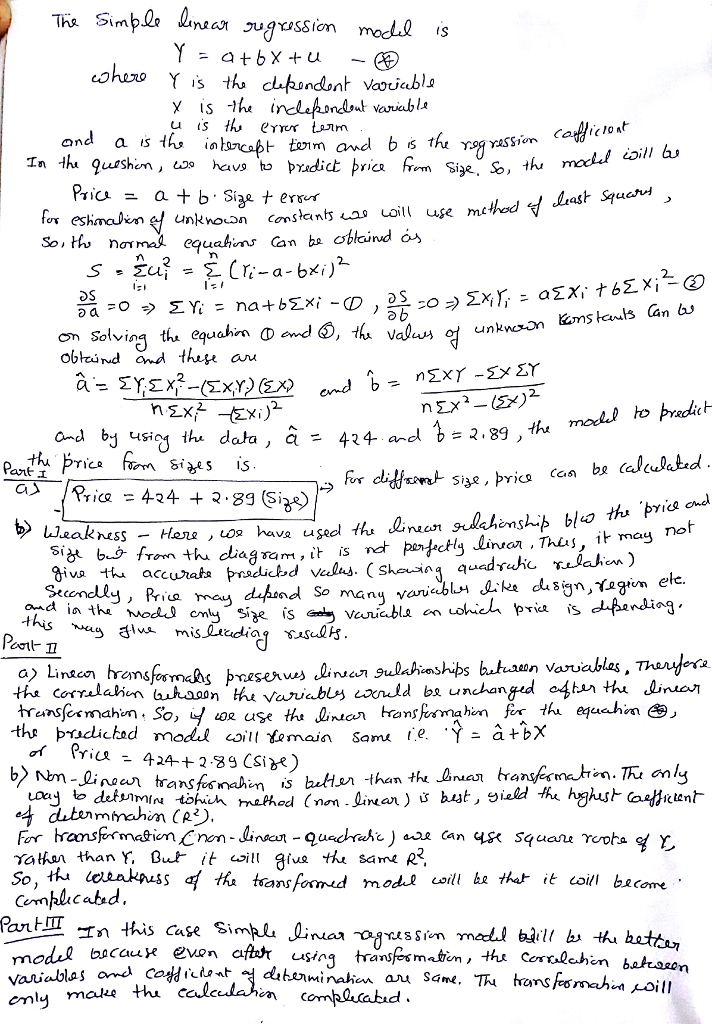 The Simple linear regression model is
Y = a+bX+u - ⊛
where Y is the dependent variable
X is the independent variable
u is the error term
and a is the intercept term and b is the regression coefficient
In the question, we have to predict price from Size. So, the model will be
Price = a + b. Size + error
for estimation of unknown constants we will use method of least squares,
So, the normal equations can be obtained as
S = Σⁿᵢ₌₁ uᵢ² = Σⁿᵢ₌₁ (Yᵢ-a-bXᵢ)²
∂S/∂a = 0 ⇒ ΣYᵢ = na+bΣXᵢ - ①, ∂S/∂b = 0 ⇒ ΣXᵢYᵢ = aΣXᵢ + bΣXᵢ² - ②
on solving the equation ① and ②, the values of unknown constants can be
obtained and these are
â = ΣYᵢΣXᵢ² - (ΣXᵢYᵢ)(ΣX) / nΣXᵢ² - (ΣXᵢ)² and b̂ = nΣXY - ΣXΣY / nΣX² - (ΣX)²
and by using the data, â = 424 and b̂ = 2.89, the model to predict
the price from sizes is.
Part I
a) Price = 424 + 2.89 (Size) → For different size, price can be calculated.
b) Weakness - Here, we have used the linear relationship b/w the price and
size but from the diagram, it is not perfectly linear. Thus, it may not
give the accurate predicted values. (Showing quadratic relation)
Secondly, Price may depend so many variables like design, region etc.
and in the model only size is variable on which price is depending.
this may give misleading results.
Part II
a) Linear transformations preserves linear relationships between variables. Therefore
the correlation between the variables would be unchanged after the linear
transformation. So, if we use the linear transformation for the equation ⊛,
the predicted model will remain same i.e. Ŷ = â+b̂X
or Price = 424+2.89 (Size)
b) Non-linear transformation is better than the linear transformation. The only
way to determine which method (non-linear) is best, yield the highest coefficient
of determination (R²).
For transformation (non-linear - quadratic) we can use square roots of Y,
rather than Y. But it will give the same R².
So, the weakness of the transformed model will be that it will become
complicated.
Part III In this case simple linear regression model will be the better
model because even after using transformation, the correlation between
variables and coefficient of determination are same. The transformation will
only make the calculation complicated.